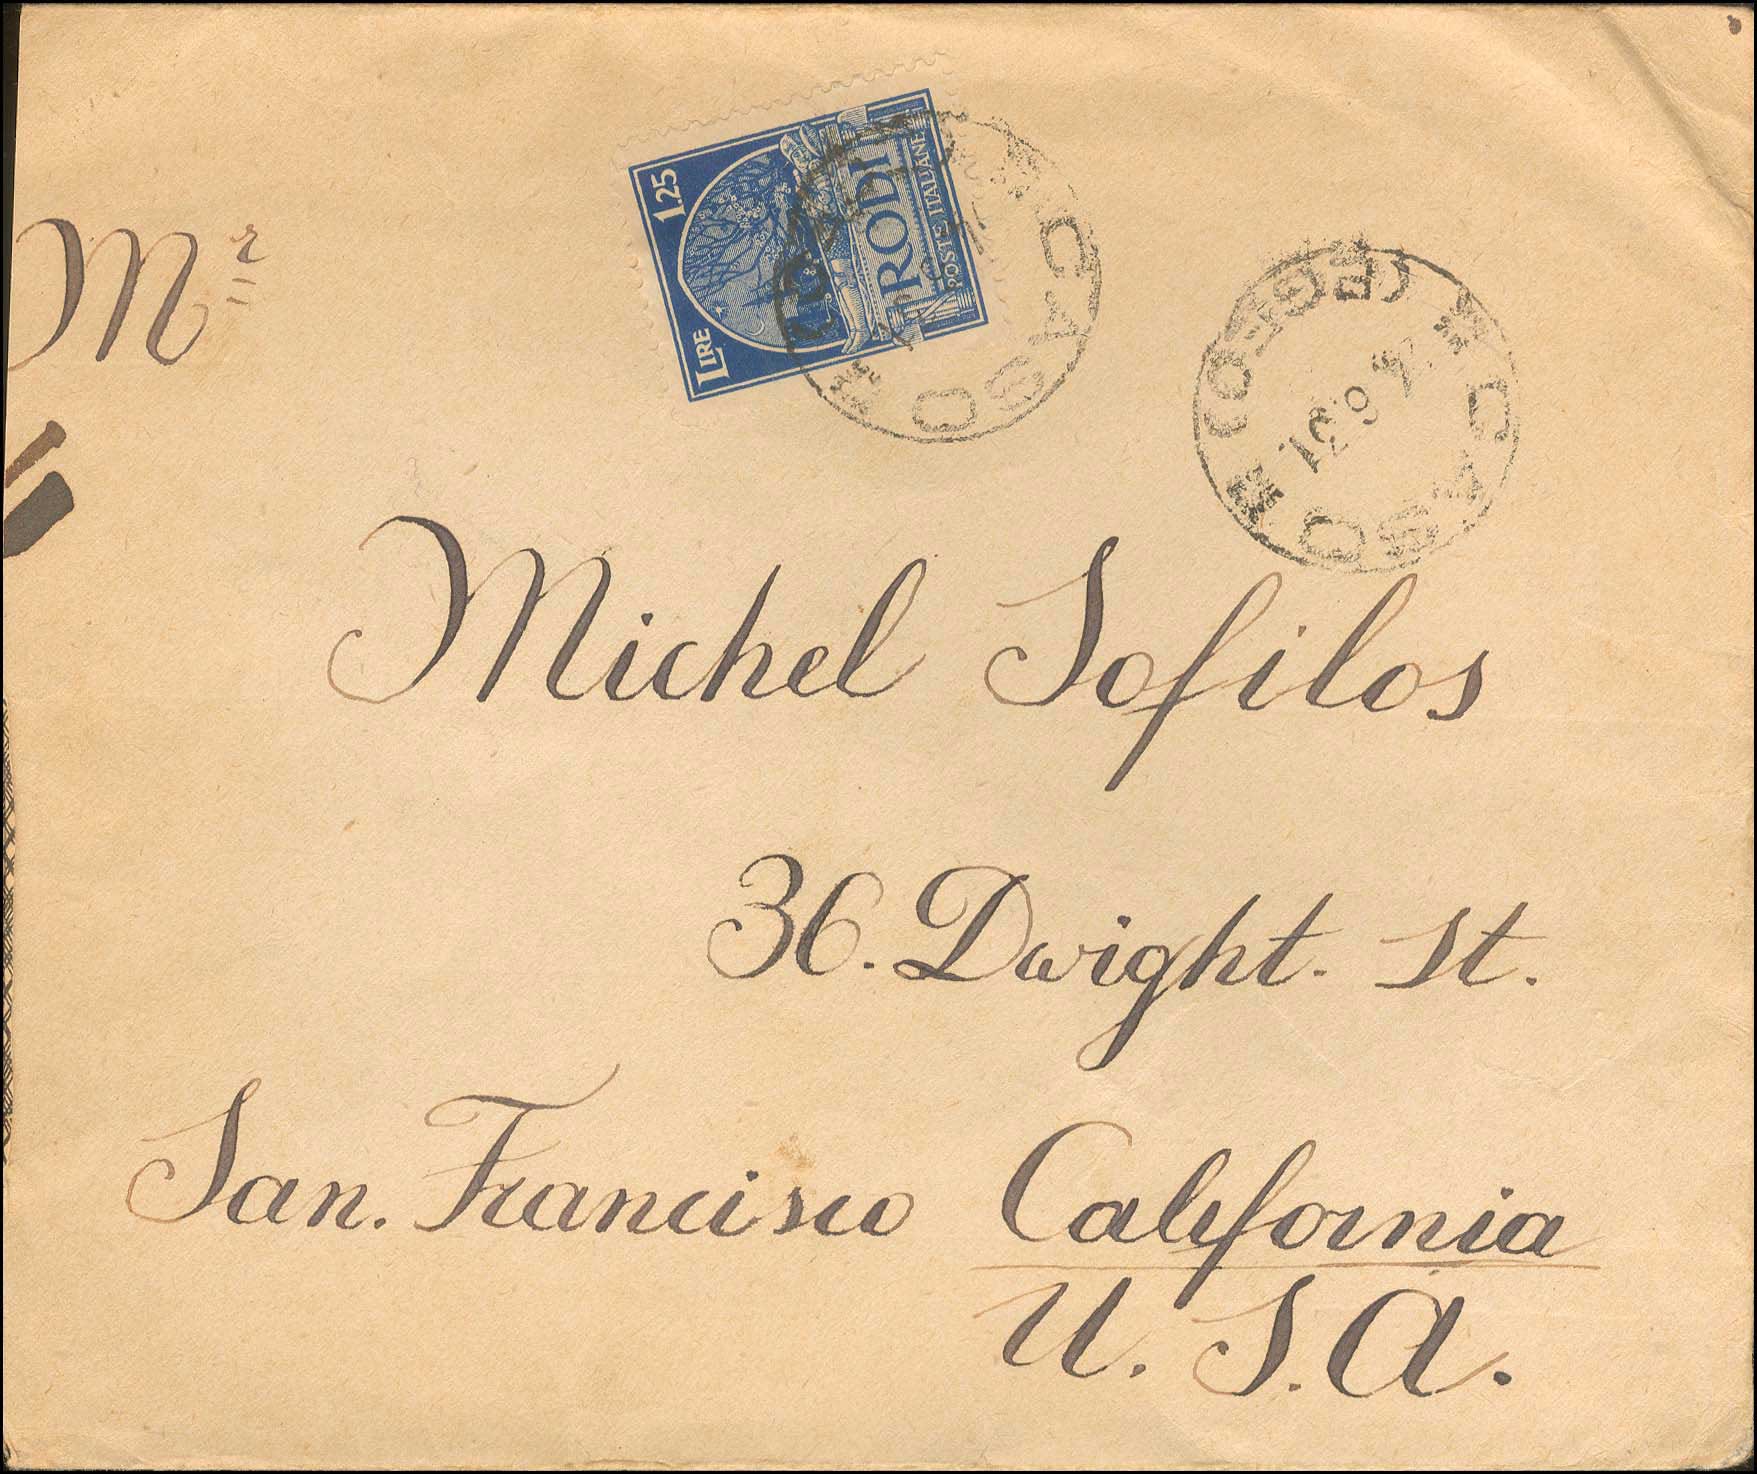 LIRE 1.25
RODI
POSTE ITALIANE
CASO
CASO
(EGEO)
6 31
Mr
Michel Sofilos
36. Dwight. St.
San. Francisco California
U. S. A.